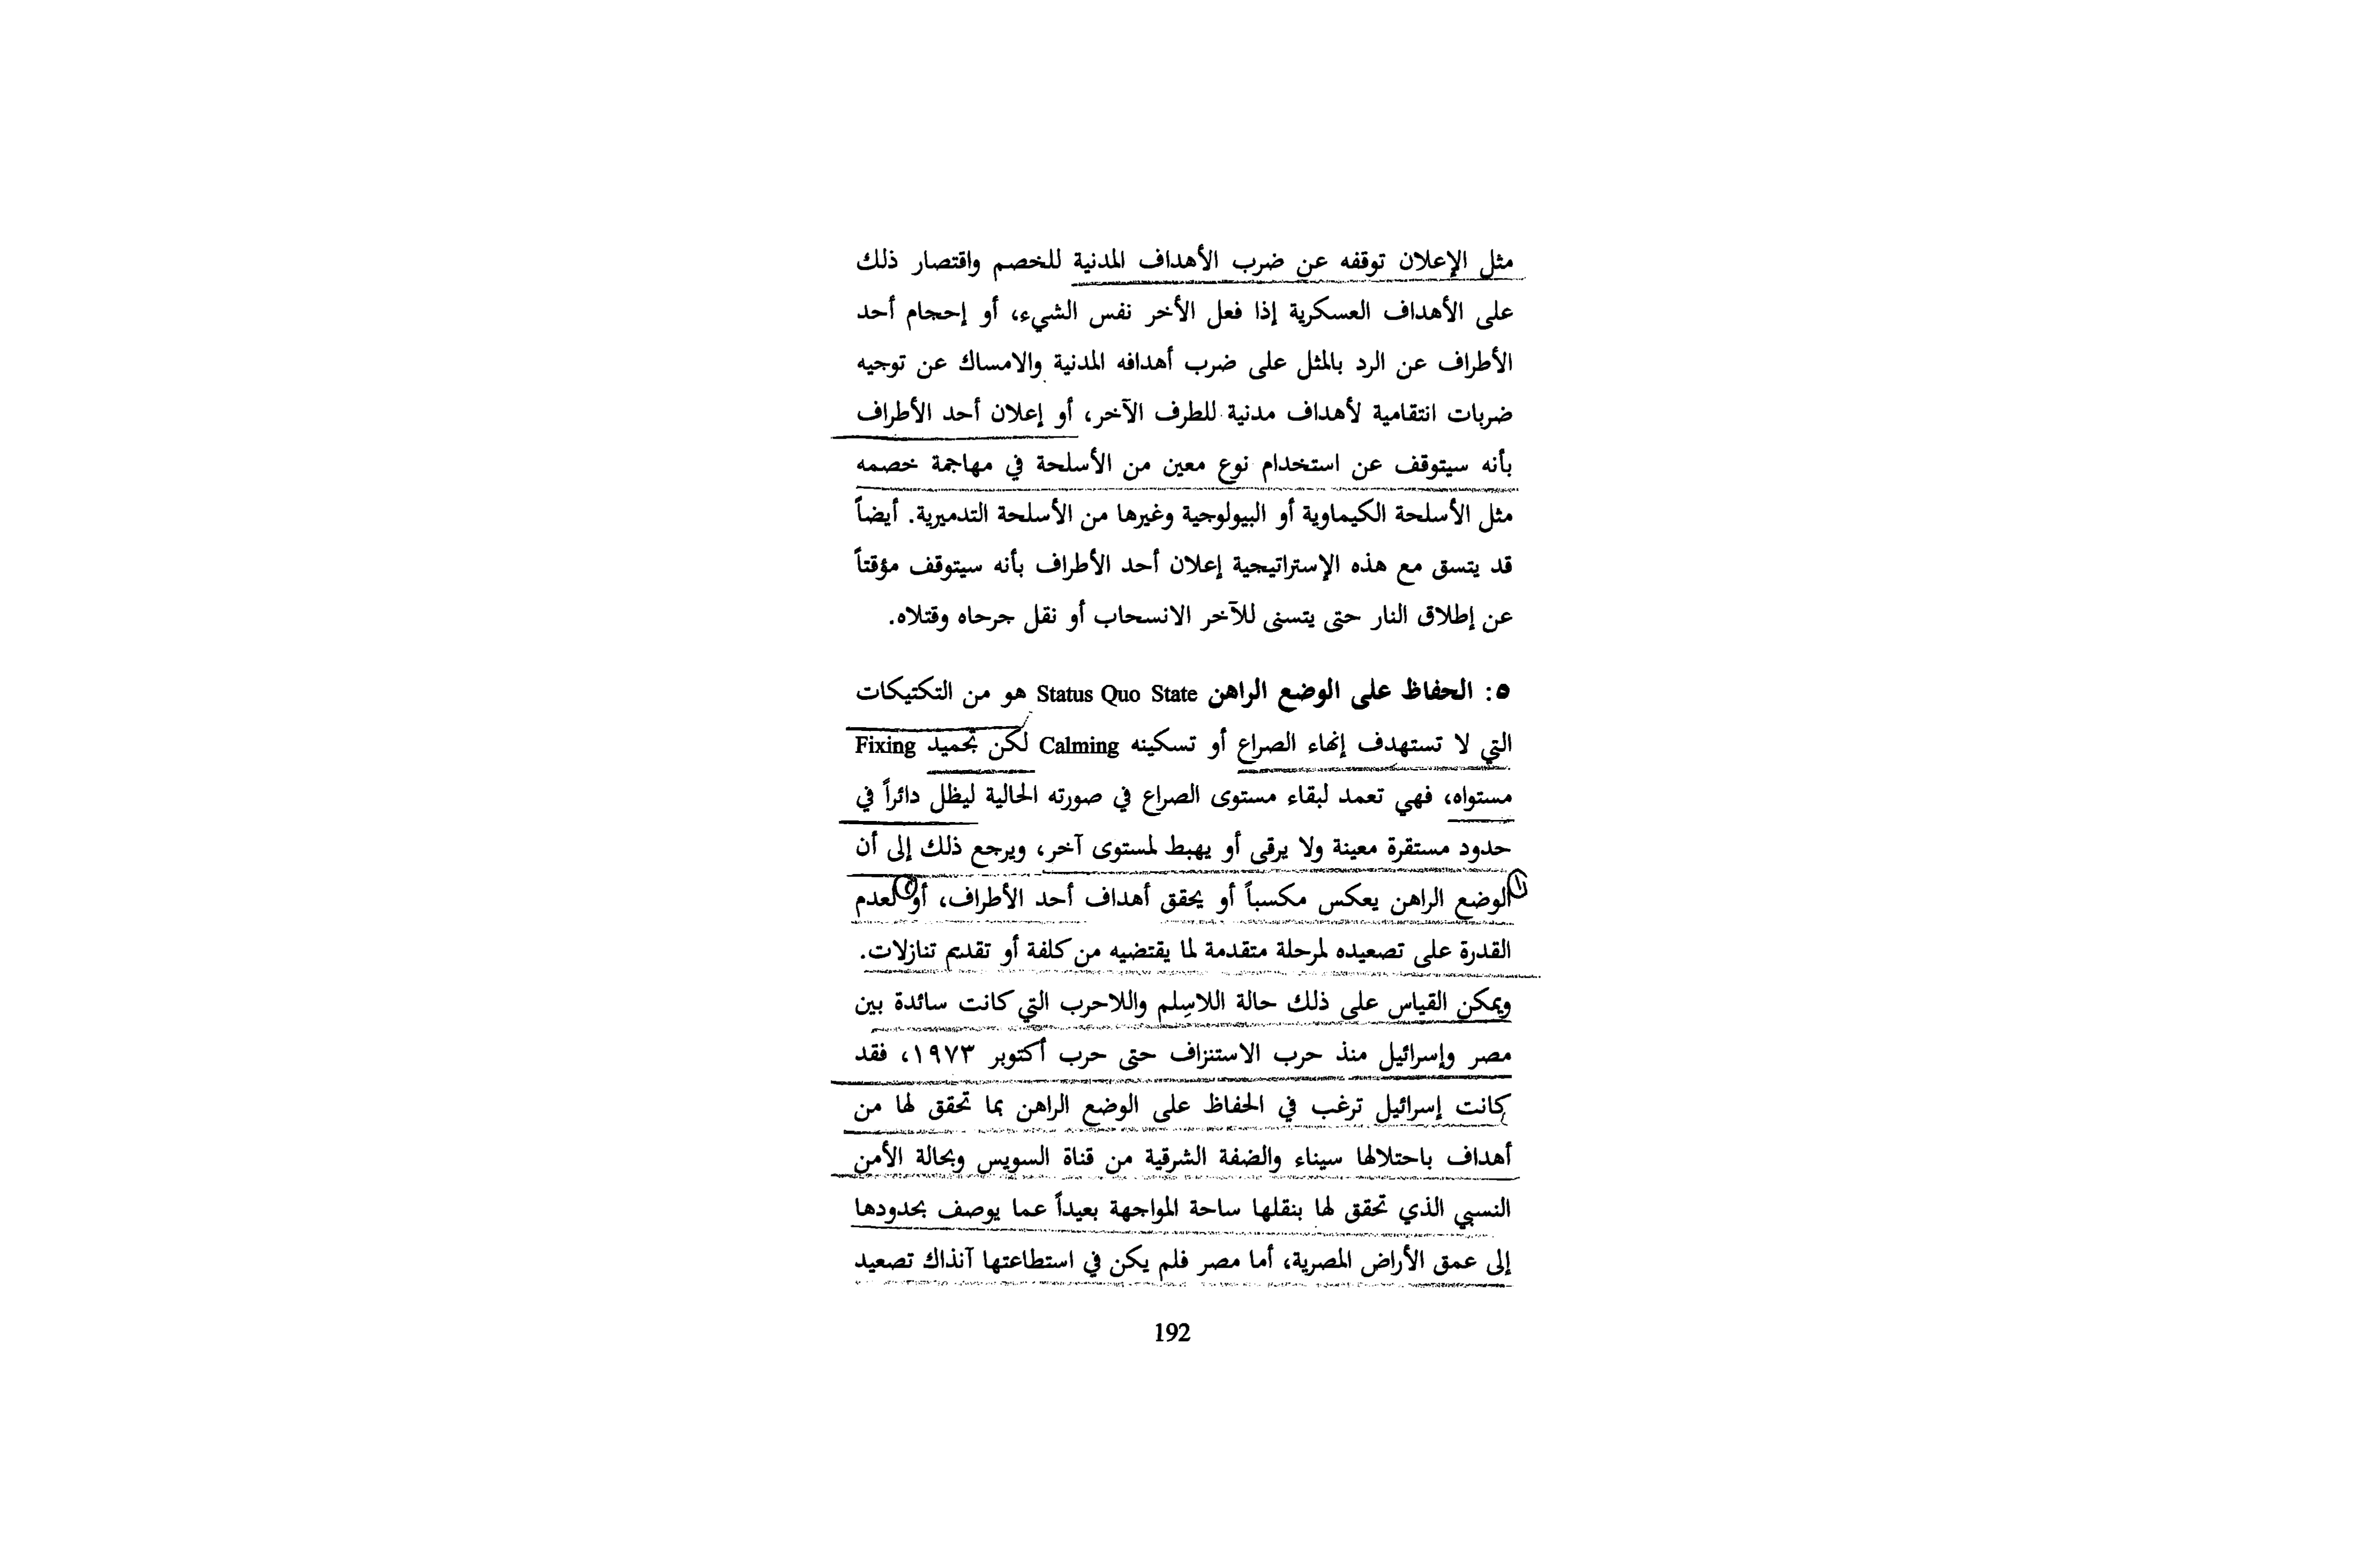 مثل الإعلان توقفه عن ضرب الأهداف المدنية للخصم واقتصار ذلك
على الأهداف العسكرية إذا فعل الأخر نفس الشيء، أو إحجام أحد
الأطراف عن الرد بالمثل على ضرب أهدافه المدنية والامساك عن توجيه
ضربات انتقامية لأهداف مدنية للطرف الآخر، أو إعلان أحد الأطراف
بأنه سيتوقف عن استخدام نوع معين من الأسلحة في مهاجمة خصمه
مثل الأسلحة الكيماوية أو البيولوجية وغيرها من الأسلحة التدميرية. أيضاً
قد يتسق مع هذه الإستراتيجية إعلان أحد الأطراف بأنه سيتوقف مؤقتاً
عن إطلاق النار حتى يتسنى للآخر الانسحاب أو نقل جرحاه وقتلاه.
٥: الحفاظ على الوضع الراهن Status Quo State هو من التكتيكات
التي لا تستهدف إنهاء الصراع أو تسكينه Calming لكن تجميد Fixing
مستواه، فهي تعمد لبقاء مستوى الصراع في صورته الحالية ليظل دائراً في
حدود مستقرة معينة ولا يرقى أو يهبط لمستوى آخر، ويرجع ذلك إلى أن
١ الوضع الراهن يعكس مكسباً أو يحقق أهداف أحد الأطراف، أو ٢ لعدم
القدرة على تصعيده لمرحلة متقدمة لما يقتضيه من كلفة أو تقديم تنازلات.
ويمكن القياس على ذلك حالة اللاسِلم واللاحرب التي كانت سائدة بين
مصر وإسرائيل منذ حرب الاستنزاف حتى حرب أكتوبر ١٩٧٣، فقد
كانت إسرائيل ترغب في الحفاظ على الوضع الراهن بما تحقق لها من
أهداف باحتلالها سيناء والضفة الشرقية من قناة السويس وبحالة الأمن
النسبي الذي تحقق لها بنقلها ساحة المواجهة بعيداً عما يوصف بحدودها
إلى عمق الأراض المصرية، أما مصر فلم يكن في استطاعتها آنذاك تصعيد
192